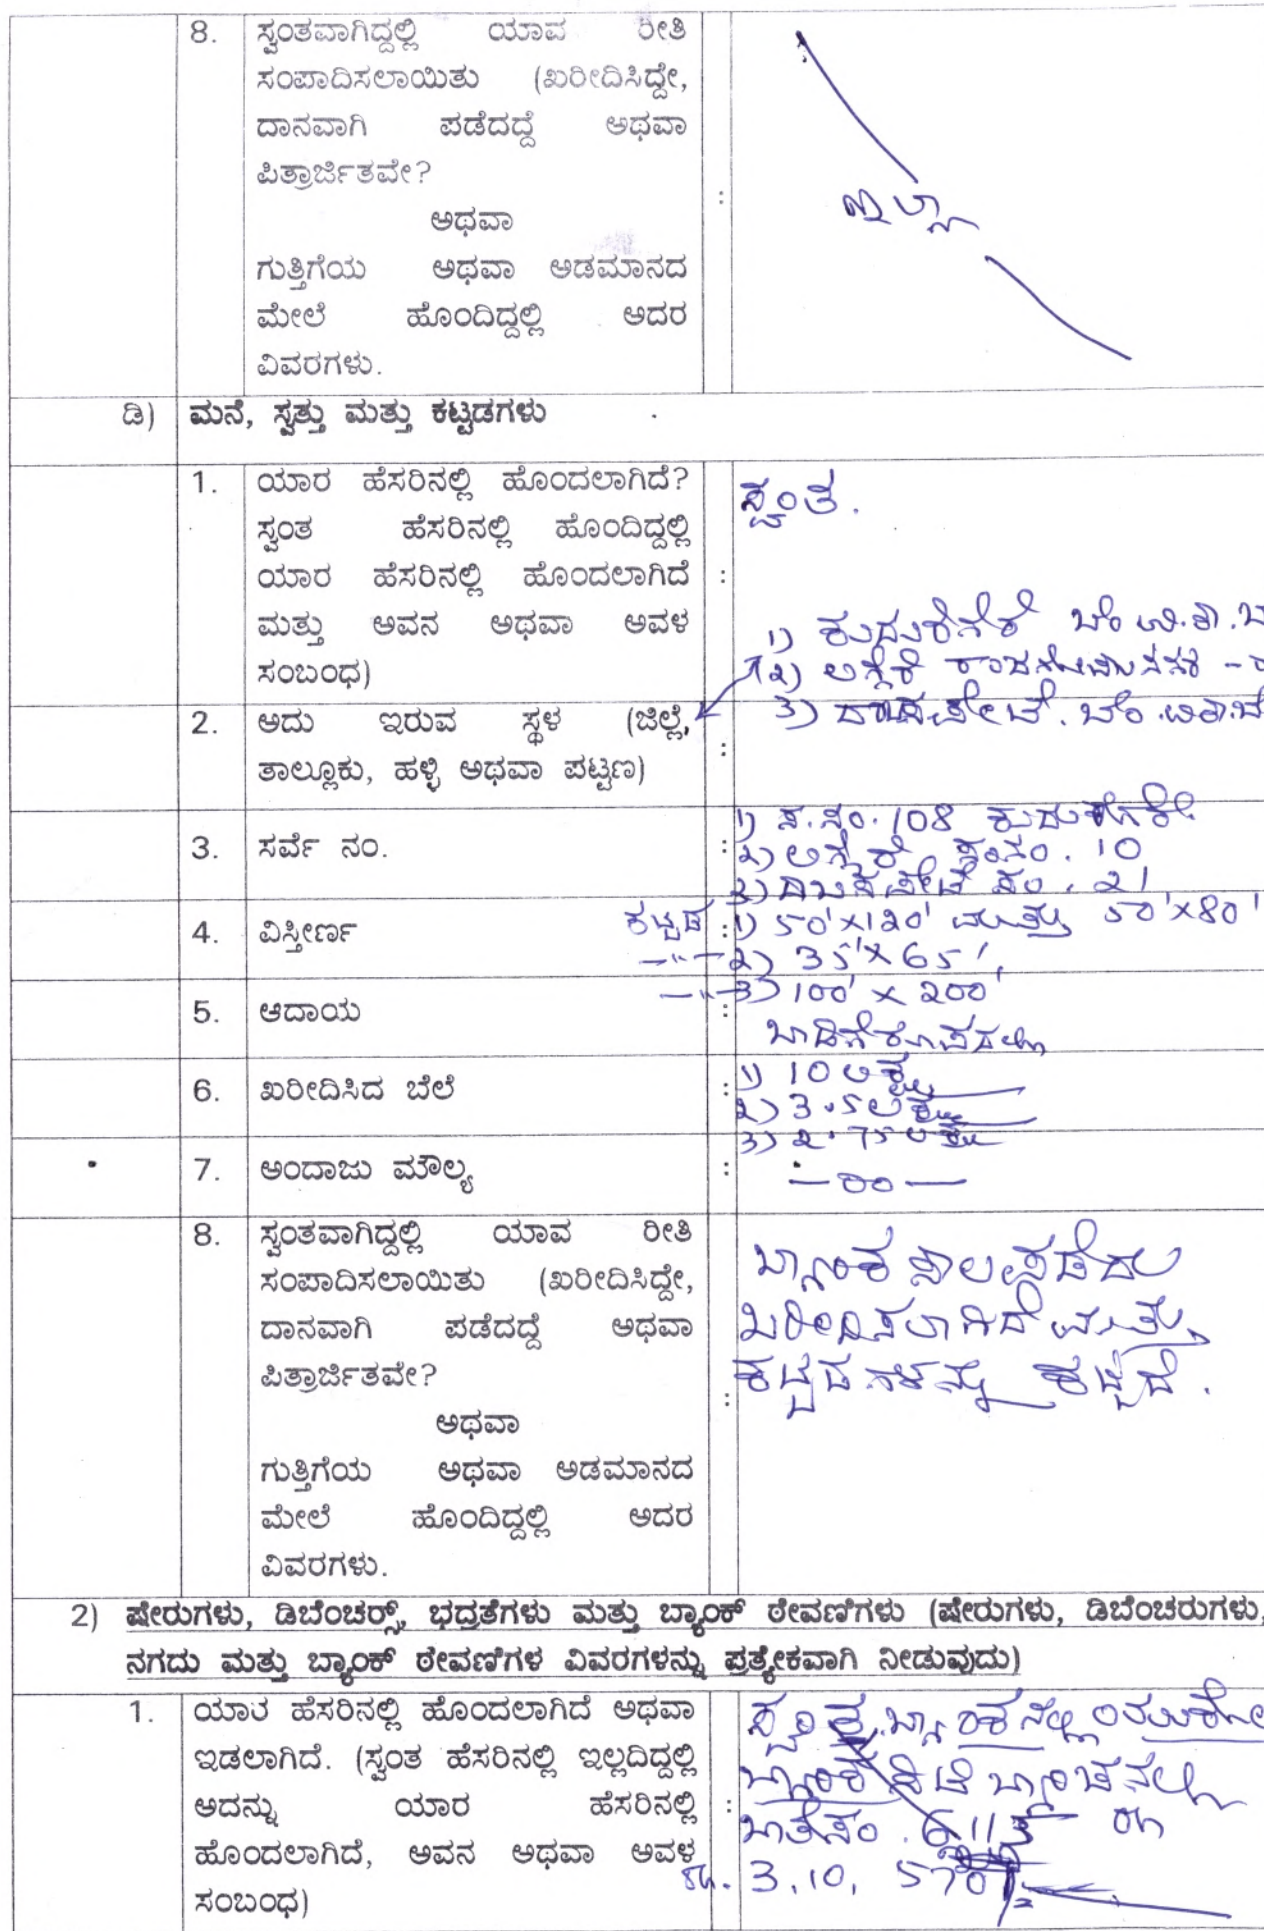 8. ಸ್ವಂತವಾಗಿದ್ದಲ್ಲಿ ಯಾವ ರೀತಿ
ಸಂಪಾದಿಸಲಾಯಿತು (ಖರೀದಿಸಿದ್ದೇ,
ದಾನವಾಗಿ ಪಡೆದದ್ದೆ ಅಥವಾ
ಪಿತ್ರಾರ್ಜಿತವೇ?
ಅಥವಾ
ಗುತ್ತಿಗೆಯ ಅಥವಾ ಅಡಮಾನದ
ಮೇಲೆ ಹೊಂದಿದ್ದಲ್ಲಿ ಅದರ
ವಿವರಗಳು.
:
ಇಲ್ಲಾ
ಡಿ) ಮನೆ, ಸ್ವತ್ತು ಮತ್ತು ಕಟ್ಟಡಗಳು
1. ಯಾರ ಹೆಸರಿನಲ್ಲಿ ಹೊಂದಲಾಗಿದೆ?
ಸ್ವಂತ ಹೆಸರಿನಲ್ಲಿ ಹೊಂದಿದ್ದಲ್ಲಿ
ಯಾರ ಹೆಸರಿನಲ್ಲಿ ಹೊಂದಲಾಗಿದೆ :
ಮತ್ತು ಅವನ ಅಥವಾ ಅವಳ
ಸಂಬಂಧ)
ಸ್ವಂತ.
1) ಕುದುರೆಗೆರೆ
2) ಲಗ್ಗೆರೆ
3)
2. ಅದು ಇರುವ ಸ್ಥಳ (ಜಿಲ್ಲೆ,
ತಾಲ್ಲೂಕು, ಹಳ್ಳಿ ಅಥವಾ ಪಟ್ಟಣ) :
3. ಸರ್ವೆ ನಂ. :
1) ಸ.ನಂ. 108 ಕುದುರೆಗೆರೆ
2) ಲಗ್ಗೆರೆ 10
3) ನಂ. 21
4. ವಿಸ್ತೀರ್ಣ :
ಕಟ್ಟಡ 1) 50'x120' ಮತ್ತು 50'x80'
—"— 2) 35'x65',
—"— 3) 100' x 200'
5. ಆದಾಯ :
ಬಾಡಿಗೆ ರೂಪದಲ್ಲಿ
6. ಖರೀದಿಸಿದ ಬೆಲೆ :
1) 10 ಲಕ್ಷ
2) 3.5 ಲಕ್ಷ
3) 2.75 ಲಕ್ಷ
7. ಅಂದಾಜು ಮೌಲ್ಯ :
8. ಸ್ವಂತವಾಗಿದ್ದಲ್ಲಿ ಯಾವ ರೀತಿ
ಸಂಪಾದಿಸಲಾಯಿತು (ಖರೀದಿಸಿದ್ದೇ,
ದಾನವಾಗಿ ಪಡೆದದ್ದೆ ಅಥವಾ
ಪಿತ್ರಾರ್ಜಿತವೇ?
ಅಥವಾ
ಗುತ್ತಿಗೆಯ ಅಥವಾ ಅಡಮಾನದ
ಮೇಲೆ ಹೊಂದಿದ್ದಲ್ಲಿ ಅದರ
ವಿವರಗಳು.
:
ಬ್ಯಾಂಕ ಸಾಲ ಪಡೆದು
ಖರೀದಿಸಲಾಗಿದೆ ಮತ್ತು
ಕಟ್ಟಡಗಳನ್ನು ಕಟ್ಟಿದೆ.
2) ಷೇರುಗಳು, ಡಿಬೆಂಚರ್ಸ್, ಭದ್ರತೆಗಳು ಮತ್ತು ಬ್ಯಾಂಕ್ ಠೇವಣಿಗಳು (ಷೇರುಗಳು, ಡಿಬೆಂಚರುಗಳು,
ನಗದು ಮತ್ತು ಬ್ಯಾಂಕ್ ಠೇವಣಿಗಳ ವಿವರಗಳನ್ನು ಪ್ರತ್ಯೇಕವಾಗಿ ನೀಡುವುದು)
1. ಯಾರ ಹೆಸರಿನಲ್ಲಿ ಹೊಂದಲಾಗಿದೆ ಅಥವಾ
ಇಡಲಾಗಿದೆ. (ಸ್ವಂತ ಹೆಸರಿನಲ್ಲಿ ಇಲ್ಲದಿದ್ದಲ್ಲಿ
ಅದನ್ನು ಯಾರ ಹೆಸರಿನಲ್ಲಿ :
ಹೊಂದಲಾಗಿದೆ, ಅವನ ಅಥವಾ ಅವಳ
ಸಂಬಂಧ)
ಬ್ರಾಂಚನಲ್ಲಿ
ಖಾತೆ ನಂ.